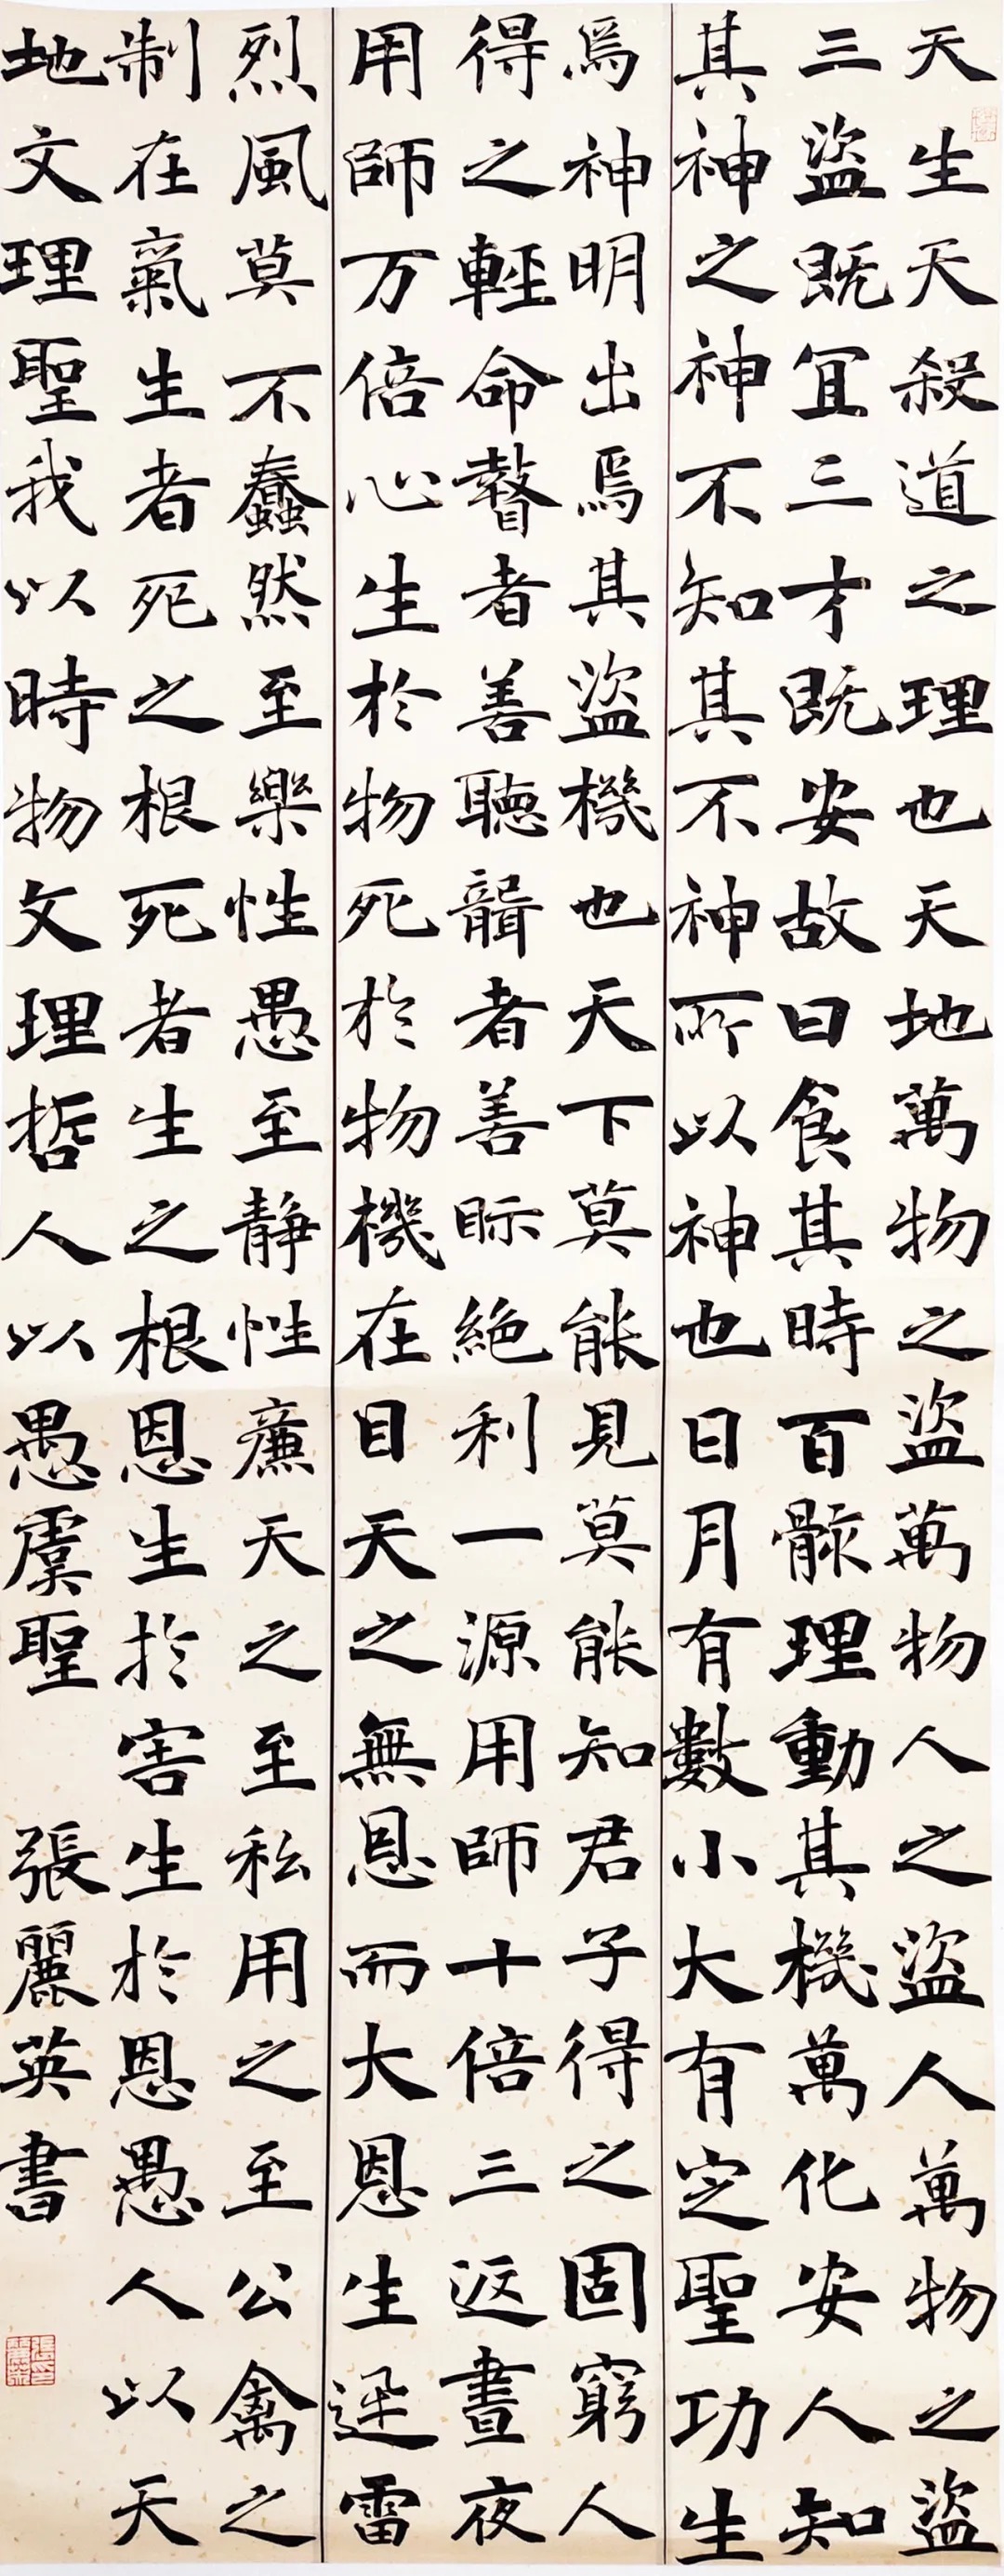 天生天殺道之理也天地萬物之盜萬物人之盜人萬物之盜
三盜既宜三才既安故曰食其時百骸理動其機萬化安人知
其神之神不知其不神所以神也日月有數小大有定聖功生
焉神明出焉其盜機也天下莫能見莫能知君子得之固窮人
得之輕命瞽者善聽聾者善眎絕利一源用師十倍三返晝夜
用師万倍心生於物死於物機在目天之無恩而大恩生迅雷
烈風莫不蠢然至樂性愚至靜性廉天之至私用之至公禽之
制在氣生者死之根死者生之根恩生於害生於恩愚人以天
地文理聖我以時物文理哲人以愚虞聖 張麗英書